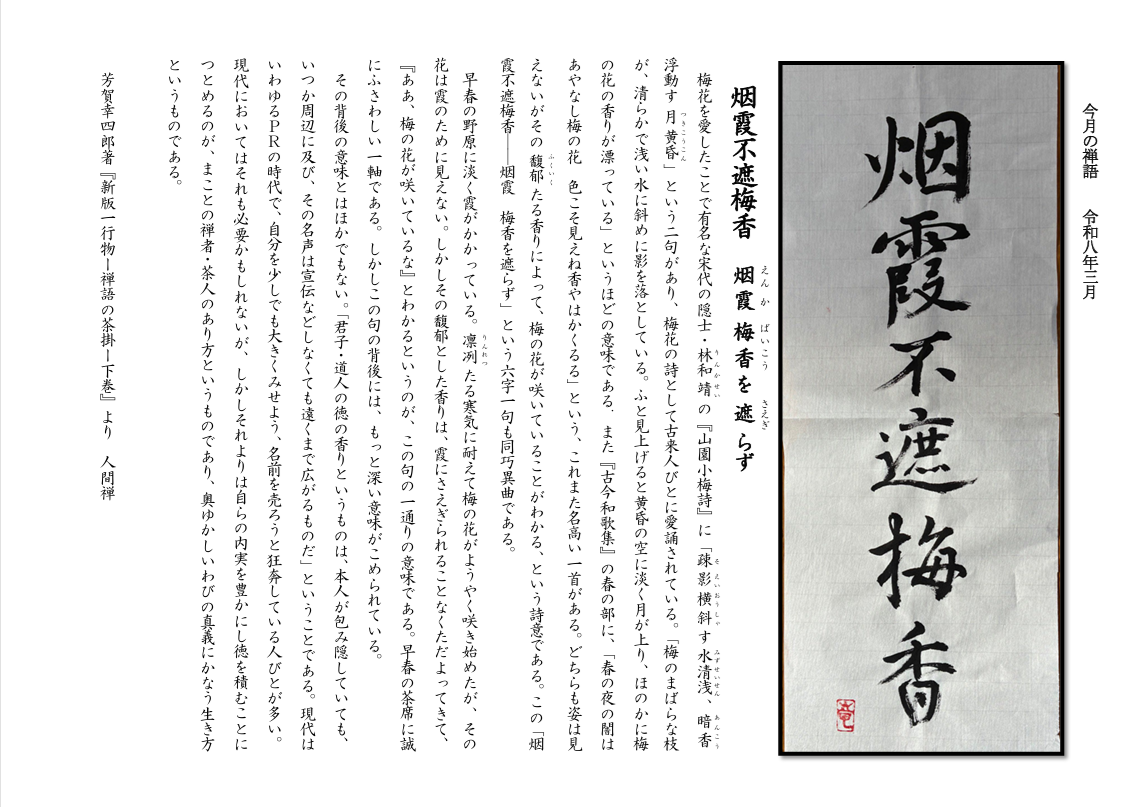 今月の禅語　令和八年三月
烟霞不遮梅香
竜
烟霞不遮梅香　烟霞　梅香を遮らず
えんか　ばいこう　さえぎ
梅花を愛したことで有名な宋代の隠士・林和靖の『山園小梅詩』に「疎影横斜す水清浅、暗香
りんかせい　そえいおうしゃ　みずせいせん　あんこう
浮動す月黄昏」という二句があり、梅花の詩として古来人びとに愛誦されている。「梅のまばらな枝
つきこうこん
が、清らかで浅い水に斜めに影を落としている。ふと見上げると黄昏の空に淡く月が上り、ほのかに梅
の花の香りが漂っている」というほどの意味である．また『古今和歌集』の春の部に、「春の夜の闇は
あやなし梅の花　色こそ見えね香やはかくるる」という、これまた名高い一首がある。どちらも姿は見
えないがその馥郁たる香りによって、梅の花が咲いていることがわかる、という詩意である。この「烟
ふくいく
霞不遮梅香――烟霞　梅香を遮らず」という六字一句も同巧異曲である。
早春の野原に淡く霞がかかっている。凛冽たる寒気に耐えて梅の花がようやく咲き始めたが、その
りんれつ
花は霞のために見えない。しかしその馥郁とした香りは、霞にさえぎられることなくただよってきて、
『ああ、梅の花が咲いているな』とわかるというのが、この句の一通りの意味である。早春の茶席に誠
にふさわしい一軸である。しかしこの句の背後には、もっと深い意味がこめられている。
その背後の意味とはほかでもない。「君子・道人の徳の香りというものは、本人が包み隠していても、
いつか周辺に及び、その名声は宣伝などしなくても遠くまで広がるものだ」ということである。現代は
いわゆるＰＲの時代で、自分を少しでも大きくみせよう、名前を売ろうと狂奔している人びとが多い。
現代においてはそれも必要かもしれないが、しかしそれよりは自らの内実を豊かにし徳を積むことに
つとめるのが、まことの禅者・茶人のあり方というものであり、奥ゆかしいわびの真義にかなう生き方
というものである。
芳賀幸四郎著『新版一行物―禅語の茶掛―下巻』より　人間禅